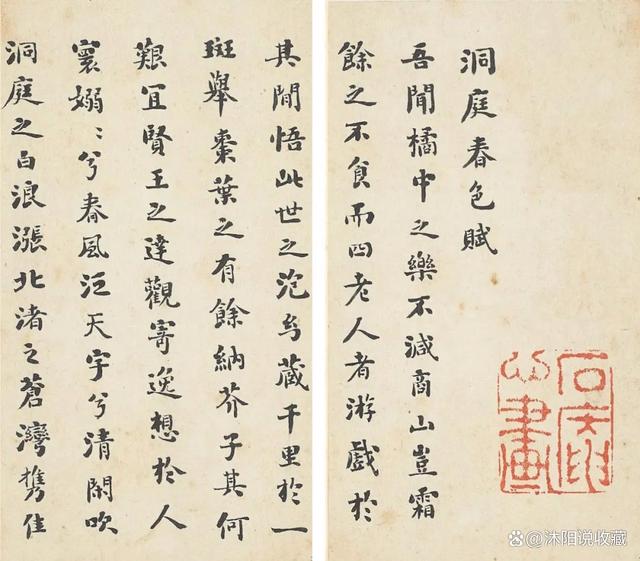 洞庭春色賦
吾聞橘中之樂不減商山豈霜
餘之不食而四老人者游戲於
其間悟此世之泡幻藏千里於一
斑舉棗葉之有餘納芥子其何
艱宜賢王之達觀寄逸想於人
寰嫋〻兮春風泛天宇兮清閑吹
洞庭之白浪漲北渚之蒼灣攜佳
沐阳说收藏